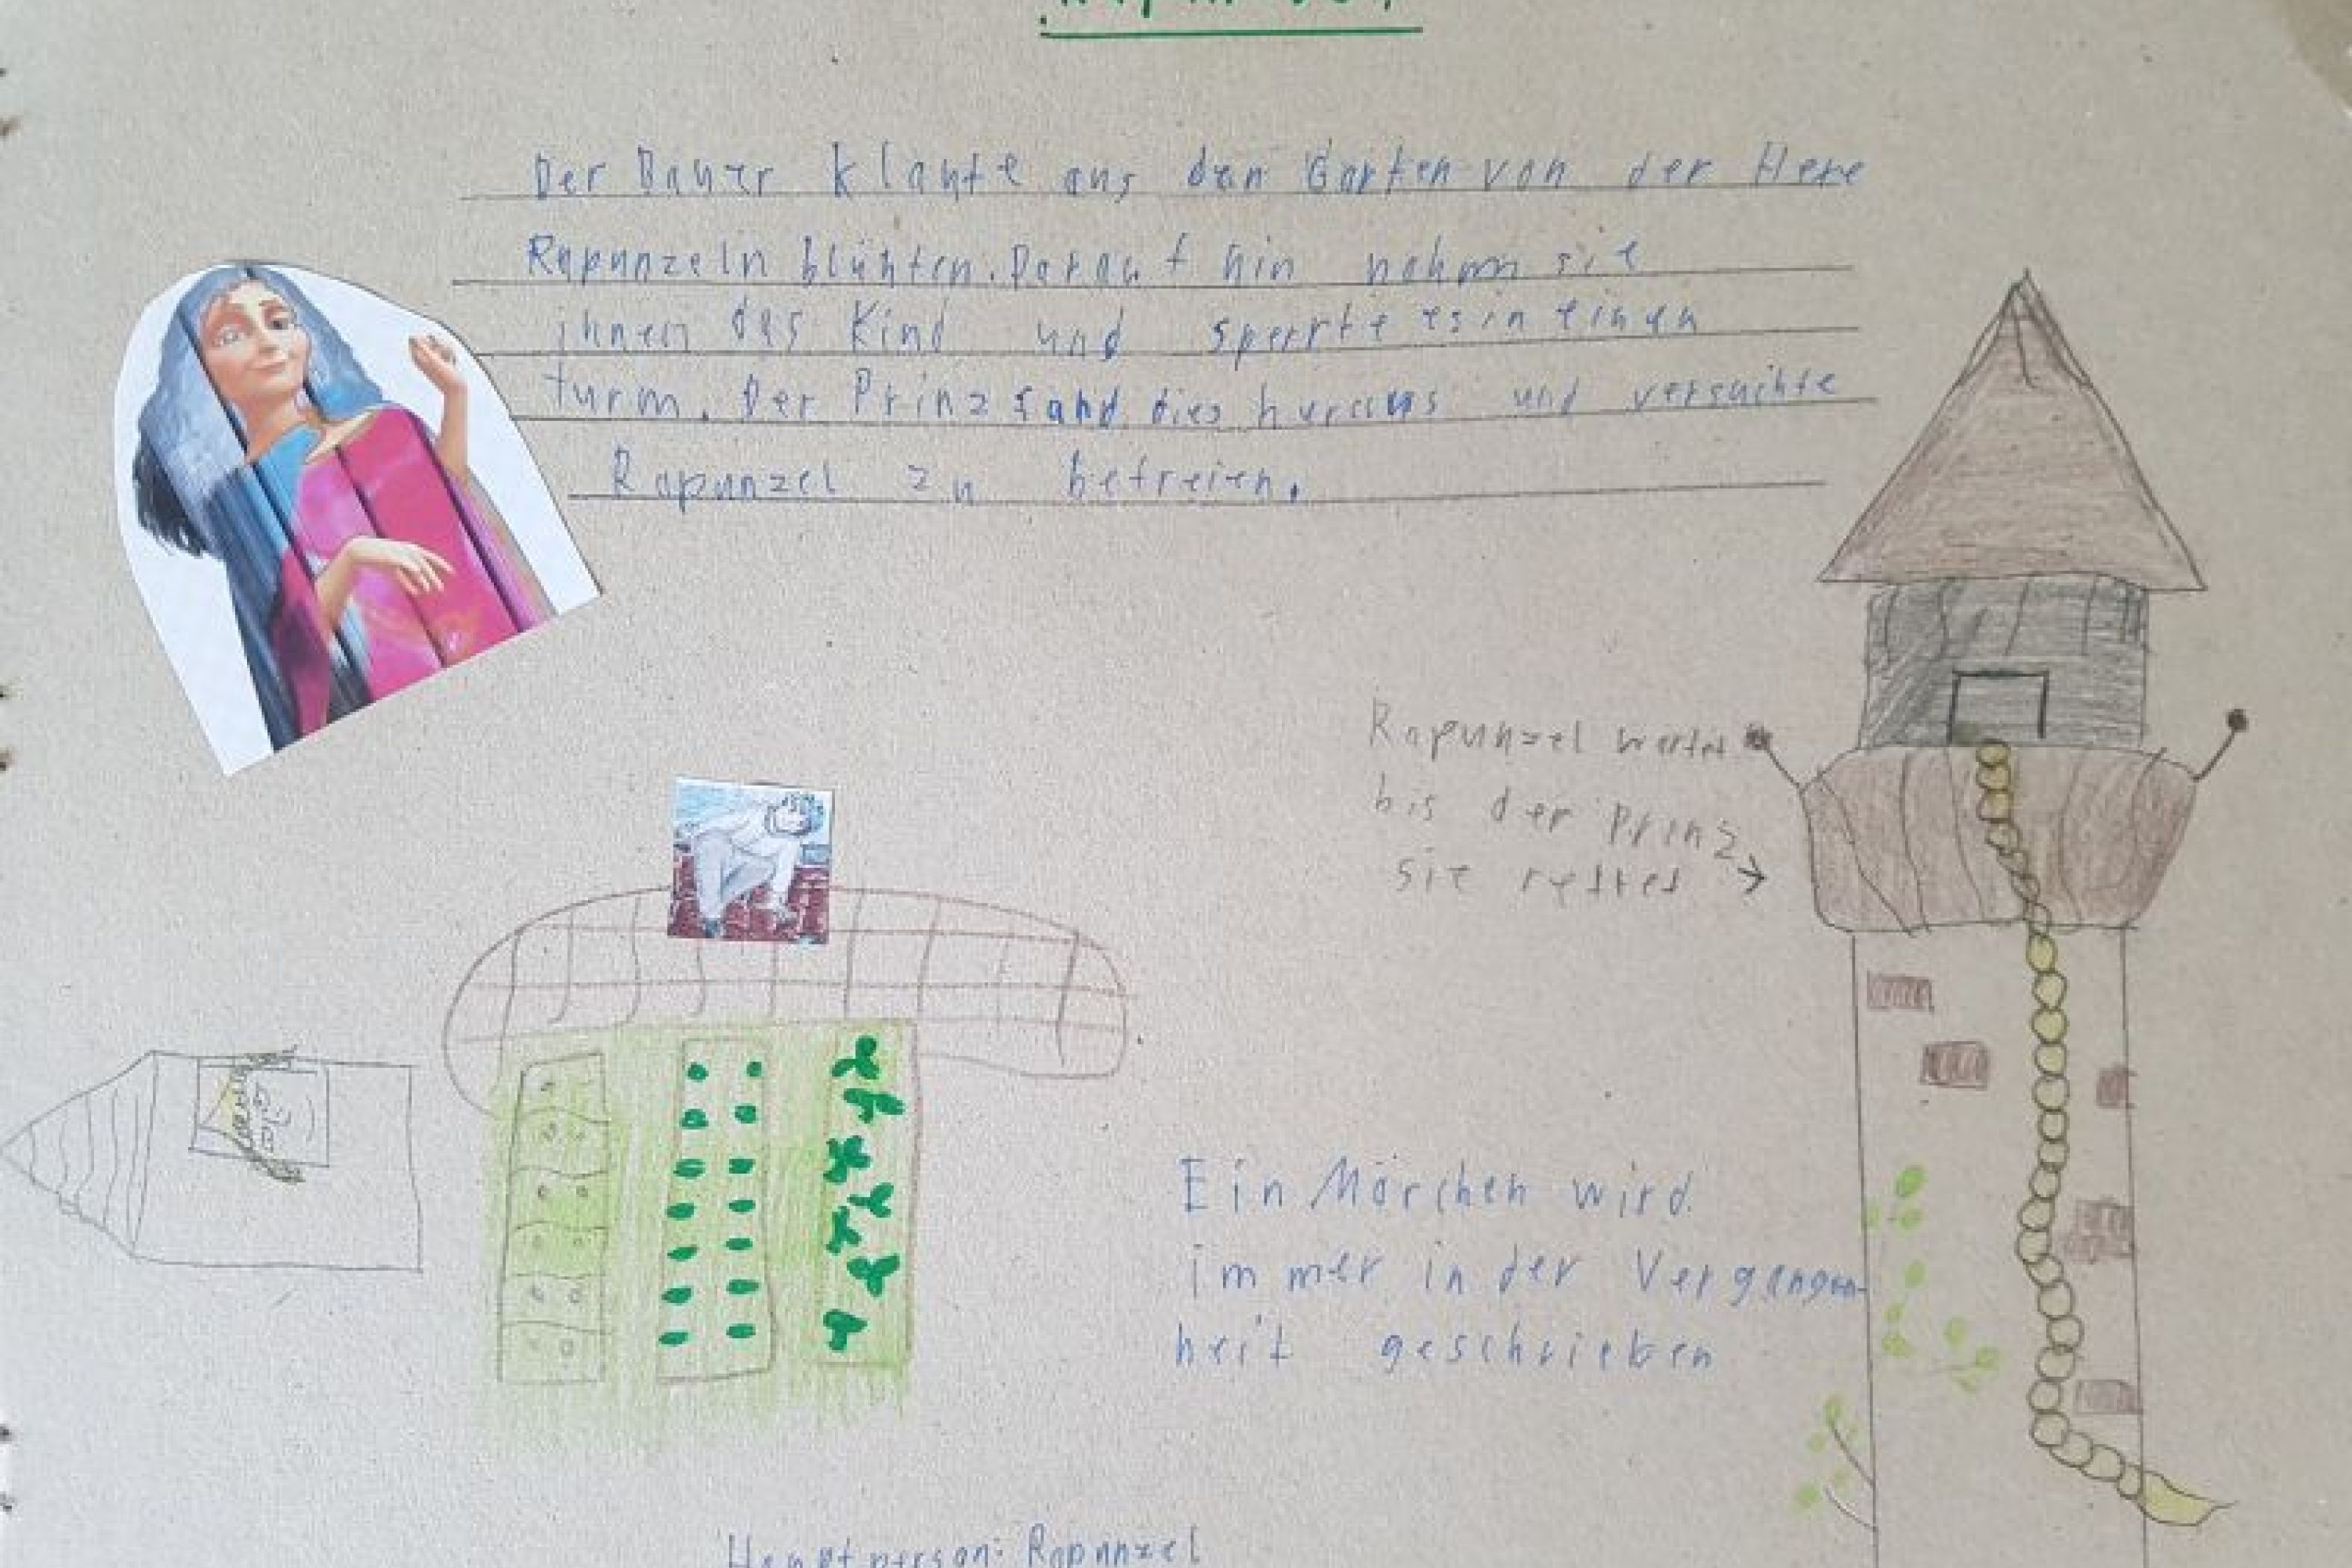 Der Bauer klaute aus den Garten von der Hexe
Rapunzeln blühten. Darauf hin nahm sie
ihnen das Kind und sperrte es in einen
turm. Der Prinz fand dies heraus und versuchte
Rapunzel zu befreien.
Rapunzel wartet
bis der Prinz
sie rettet →
Ein Märchen wird
immer in der Vergangen-
heit geschrieben
Hauptperson: Rapunzel